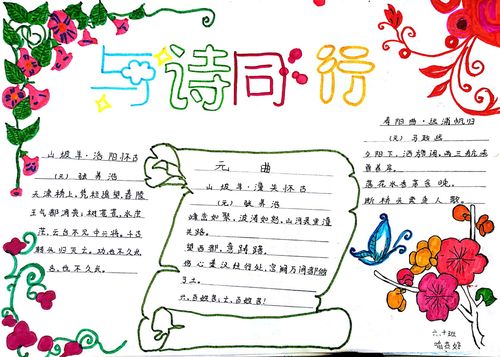 与诗同行
山坡羊·洛阳怀古
(元)张养浩
天津桥上,凭栏遥望,舂陵
王气都凋丧;树苍苍,水茫
茫,云台不见中兴将。千古
转头归灭亡。功,也不久长
名,也不久长。
元曲
山坡羊·潼关怀古
(元)张养浩
峰峦如聚,波涛如怒,山河表里潼
关路。
望西都,意踌躇。
伤心秦汉经行处,宫阙万间都做
了土。
兴,百姓苦;亡,百姓苦!
寿阳曲·远浦帆归
(元)马致远
夕阳下,酒旆闲,两三航未
曾着岸。
落花水香茅舍晚,
断桥头卖鱼人散。
六.十班